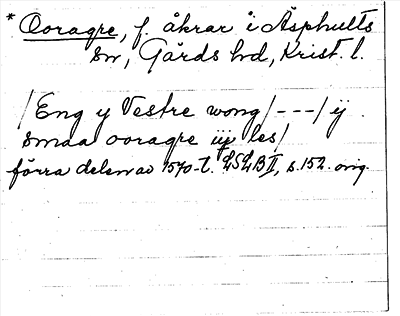 * Ooragre, f. åkrar i Äsphults
sn, Gärds hd, Krist. l.
/Eng y Vestre wong/---/ ij
smaa ooragre iij les/
förra delen av 1570-t. LSLB II, s. 152. orig.